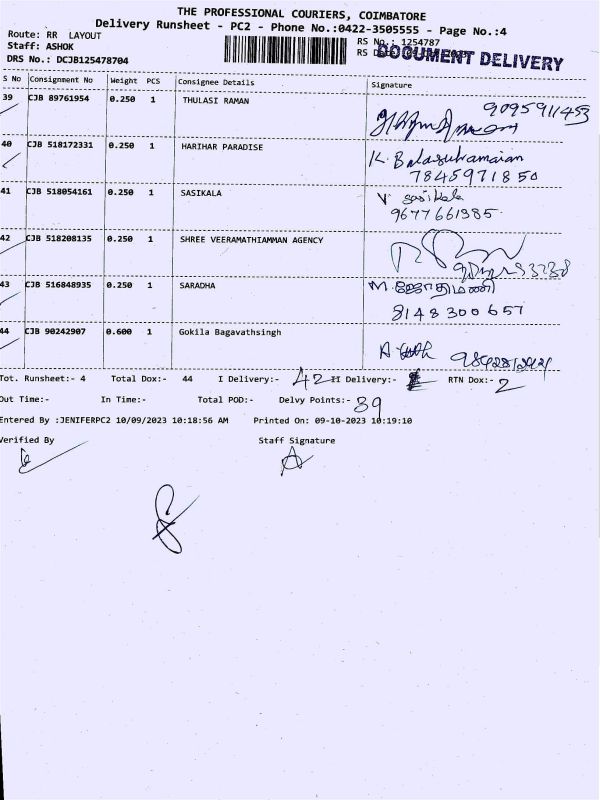 THE PROFESSIONAL COURIERS, COIMBATORE
Delivery Runsheet - PC2 - Phone No.:0422-3505555 - Page No.:4
Route: RR LAYOUT
Staff: ASHOK
DRS No.: DCJB125478704
RS No.: 1254787
RS
DOCUMENT DELIVERY
S No Consignment No Weight PCS Consignee Details Signature
39 CJB 89761954 0.250 1 THULASI RAMAN
9095911453
40 CJB 518172331 0.250 1 HARIHAR PARADISE
K. Balasubramaian
7845971850
41 CJB 518054161 0.250 1 SASIKALA
V sasikala
9677661985
42 CJB 518208135 0.250 1 SHREE VEERAMATHIAMMAN AGENCY
43 CJB 516848935 0.250 1 SARADHA
M. ஜோதிமணி
8148300657
44 CJB 90242907 0.600 1 Gokila Bagavathsingh
Tot. Runsheet:- 4 Total Dox:- 44 I Delivery:- 42 II Delivery:- RTN Dox:- 2
Out Time:- In Time:- Total POD:- Delvy Points:- 39
Entered By :JENIFERPC2 10/09/2023 10:18:56 AM Printed On: 09-10-2023 10:19:10
Verified By Staff Signature